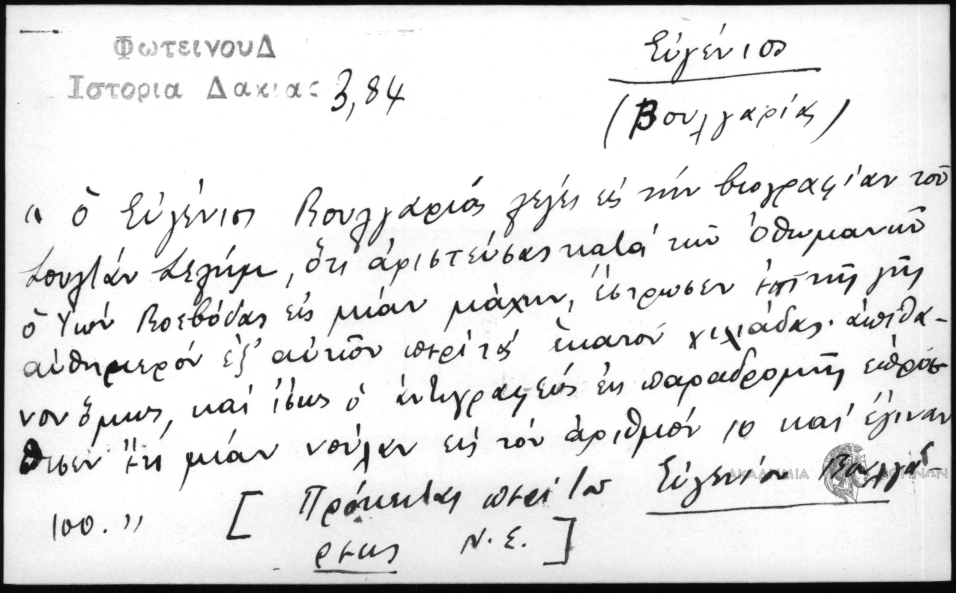 Φωτεινου Δ
Ιστορια Δακιας 3,84
Εὐγένιος
(Βουλγαρίας)
" ὁ Εὐγένιος Βουλγαρίας λέγει εἰς τὴν βιογραφίαν τοῦ
Σουλτάν Σελήμ, ὅτι ἀριστεύσας κατά τῶν ὀθωμανῶν
ὁ Ἰωάν Βοεβόδας εἰς μίαν μάχην, ἔστρωσεν ἐπί τῆς γῆς
αὐθημερόν ἐξ αὐτῶν περί τάς ἑκατόν χιλιάδας· ἀπίθα-
νον ὅμως, καί ἴσως ὁ ἀντιγραφεύς ἐκ παραδρομῆς ἐπρόσ-
θεσεν ἔτι μίαν νούλαν εἰς τόν ἀριθμόν 10 καί ἔγιναν
100. " [ Πρόκειται περί τοῦ Εὐγενίου Βουλγά-
ρεως Ν. Ε. ]
ΑΚΑΔΗΜΙΑ ΑΘΗΝΩΝ